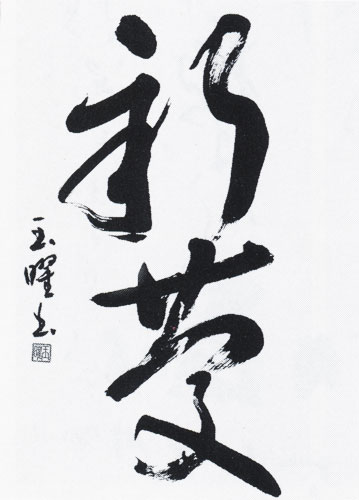 新夢
玉曜書